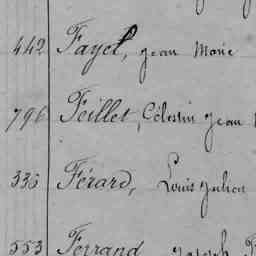 442 Fayel, Jean Marie
796 Feillet, Célestin Jean
335 Férard, Louis Julien
553 Ferrand, Joseph